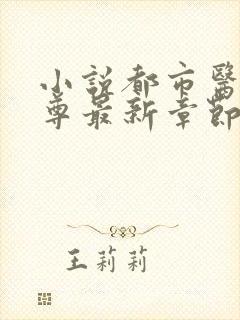 小說都市醫
尊最新章節
王莉莉